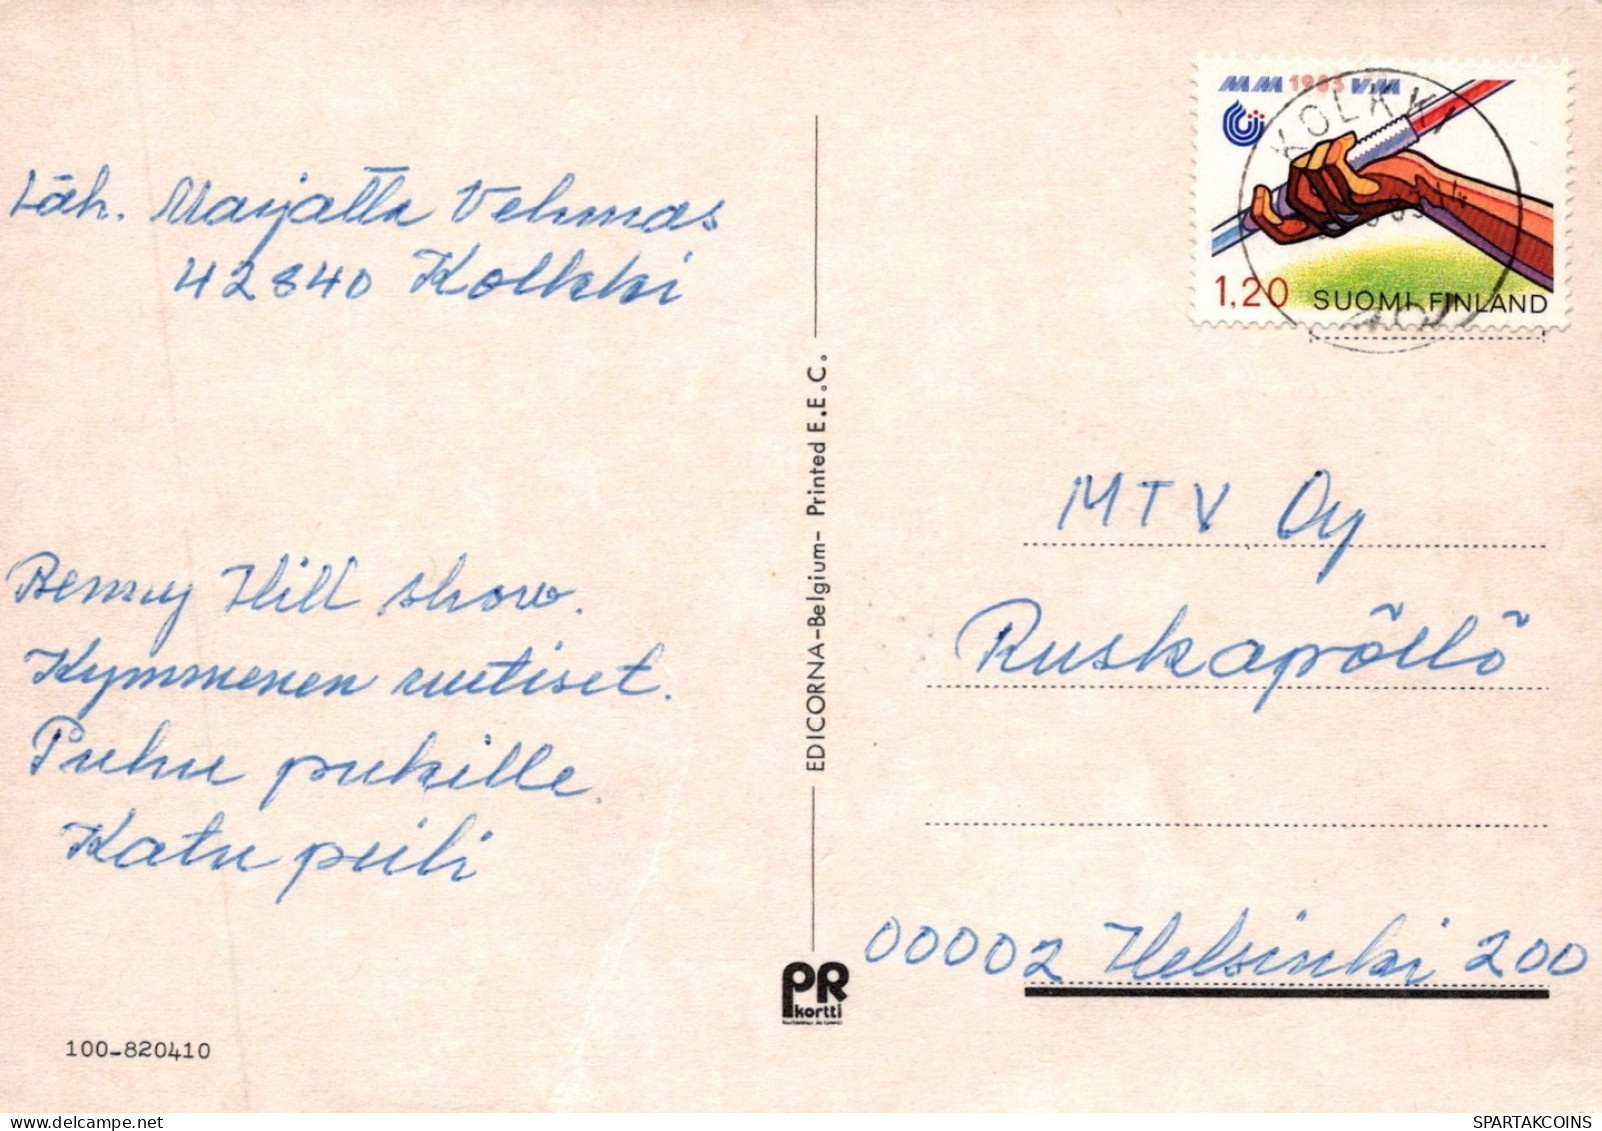 Läh. Marjatta Vehmas
42840 Kolkki
Benny Hill show.
Kymmenen uutiset.
Puhu pukille.
Katu peili
100-820410
EDICORNA-Belgium- Printed E.E.C.
PR
kortti
MM 1983 VM
KOLKKI
1,20 SUOMI FINLAND
MTV Oy
Ruskapöllö
00002 Helsinki 200
SPARTAKCOINS